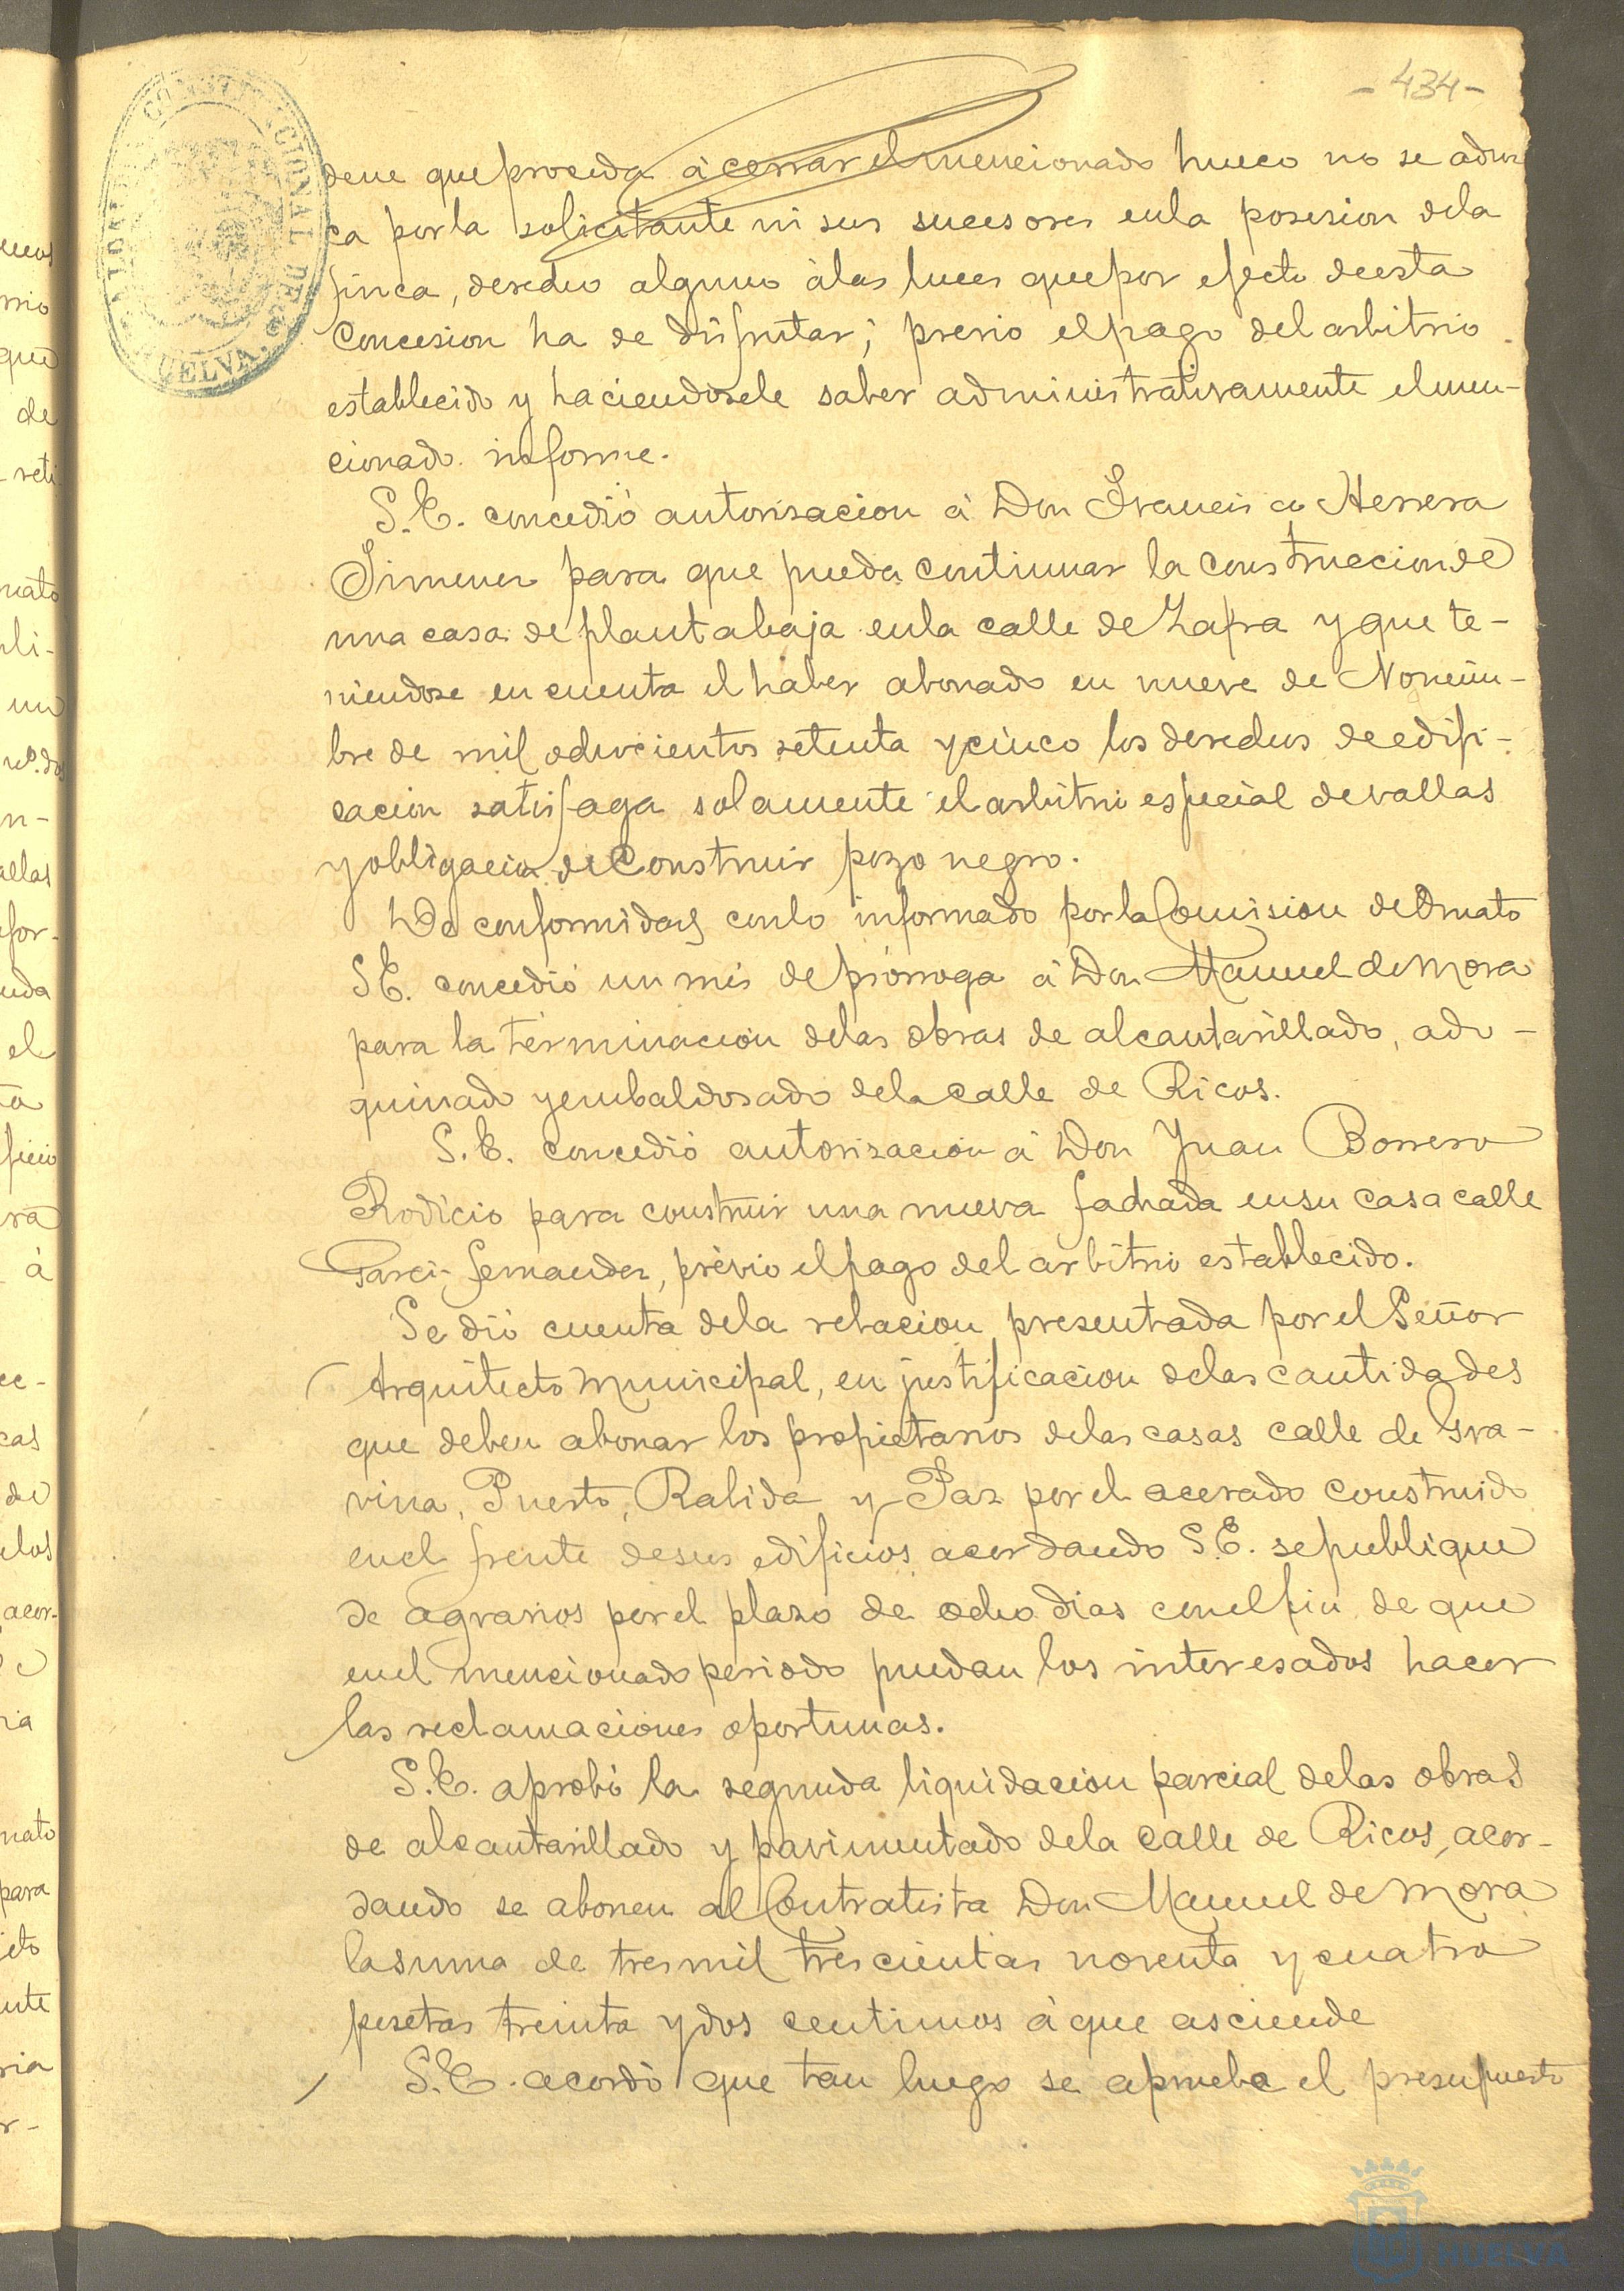 -434-
dene que proceda à cerrar el mencionado hueco no se aduz
ca por la solicitante ni sus sucesores en la posesion de la
finca, derecho alguno à las luces que por efecto de esta
concesion ha de disfrutar; previo el pago del arbitrio
establecido y haciendosele saber administrativamente el men-
cionado informe.
S.E. concedió autorisacion á Don Francisco Herrera
Jimenez para que pueda continuar la construccion de
una casa de planta baja en la calle de Zafra y que te-
niendose en cuenta el haber abonado en nueve de Noviem-
bre de mil ochocientos setenta y cinco los derechos de edifi-
cacion satisfaga solamente el arbitrio especial de vallas
y obligacion de construir pozo negro.
De conformidad con lo informado por la Comision de Ornato
S.E. concedió un mes de prórroga á Don Manuel de Mora
para la términacion de las obras de alcantarillado, ado-
quinado y embaldosado de la calle de Ricos.
S.E. concedió autorisacion á Don Juan Borrero
Rodicio para construir una nueva fachada en su casa calle
Garci-Fernandez, prévio el pago del arbitrio establecido.
Se dió cuenta de la relacion presentada por el Señor
Arquitecto Municipal, en justificacion de las cantidades
que deben abonar los propietarios de las casas calle de Gra-
vina, Puerto, Rabida y Paz por el acerado construido
en el frente de sus edificios acordando S.E. se publique
de agravios por el plazo de ocho dias con el fin de que
en el mencionado periodo puedan los interesados hacer
las reclamaciones oportunas.
S.E. aprobó la segunda liquidacion parcial de las obras
de alcantarillado y pavimentado de la calle de Ricos, acor-
dando se abonen al Contratista Don Manuel de Mora
la suma de tres mil trescientas noventa y cuatro
pesetas treinta y dos centimos á que asciende
S.E. acordó que tan luego se apruebe el presupuesto
HUELVA